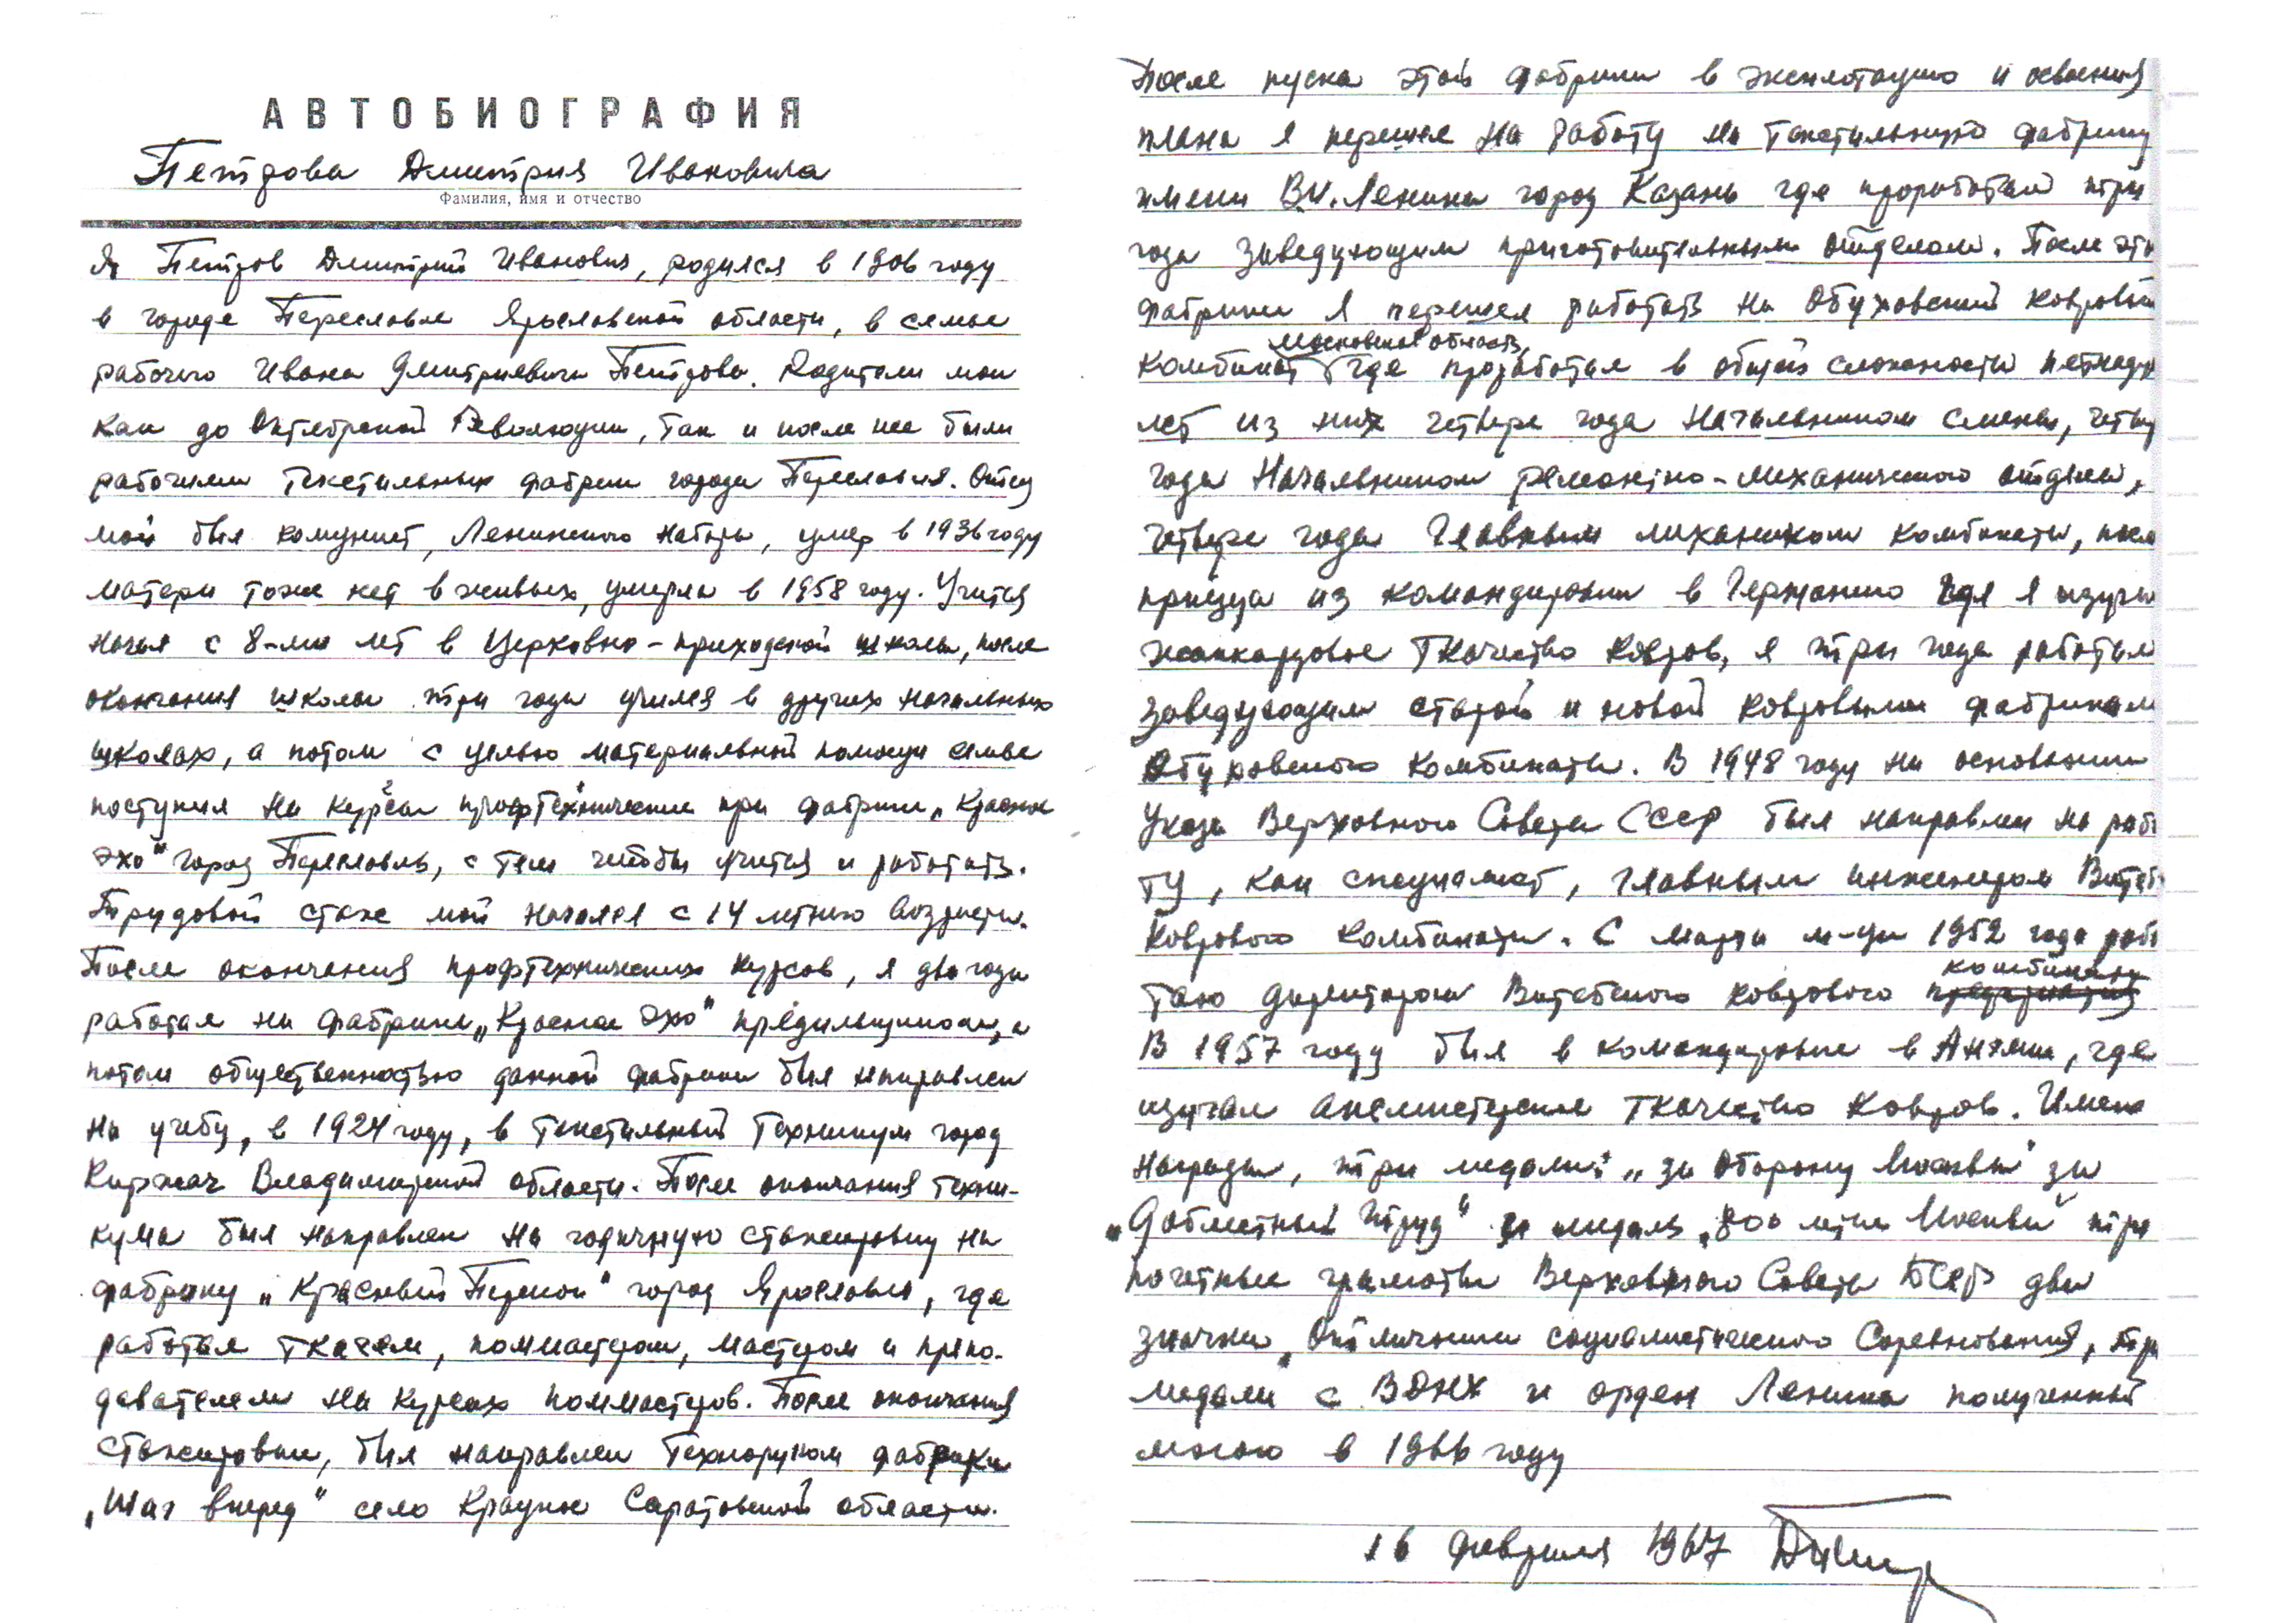 АВТОБИОГРАФИЯ
Петрова Дмитрия Ивановича
Фамилия, имя и отчество
Я Петров Дмитрий Иванович, родился в 1906 году
в городе Переславле Ярославской области, в семье
рабочего Ивана Дмитриевича Петрова. Родители мои
как до Октябрьской Революции, так и после нее были
рабочими текстильных фабрик города Переславля. Отец
мой был комунист, Ленинского набора, умер в 1936 году
матери тоже нет в живых, умерла в 1958 году. Учится
начал с 8-ми лет в Церковно-приходской школы, после
окончания школы три года учился в других начальных
школах, а потом с целью материальной помощи семье
поступил на курсы профтехнические при фабрики „Красное
эхо" город Переславль, с тем чтобы учится и работать.
Трудовой стаж мой начался с 14 летнего возраста.
После окончания профтехнических курсов, я два года
работал на фабрике „Красное Эхо" прядильщиком, а
потом общественностью данной фабрики был направлен
на учебу, в 1924 году, в Текстильный Техникум город
Киржач Владимирской области. После окончания техни-
кума был направлен на годичную стажировку на
фабрику „Красный Перекоп" город Ярославль, где
работал ткачем, поммастером, мастером и препо-
давателем на курсах поммастеров. После окончания
стажировки, был направлен техноруком фабрики
„Шаг вперед" село Крацкое Саратовской области.
После пуска этой фабрики в эксплотацию и освоения
плана я перешел на работу на Текстильную фабрику
имени В.И. Ленина город Казань где проработал три
года заведующим приготовительным отделом. После этой
фабрики я перешел работать на Обуховский ковровый
Московской область,
комбинат где проработал в общей сложности пятнадц
лет из них четыре года Начальником смены, четыр
года Начальником ремонтно-механического отдела,
четыре года Главным механиком комбината, посл
приезда из командировки в Германию где я изучал
жаккардовое ткачество ковров, я три года работал
заведующим старой и новой ковровыми фабрикам
Обуховского комбината. В 1948 году на основании
Указа Верховного Совета СССР был направлен на рабо
ту, как специалист, главным инженером Витеб
коврового комбината. С марта м-ца 1952 года рабо
комбината
таю директором Витебского коврового предприятия
В 1957 году был в командировке в Англии, где
изучал аксминстерское ткачество ковров. Имею
награды, три медали: „за Оборону Москвы" за
„Доблестный труд" и медаль „800 лет Москвы" три
почетные грамоты Верховного Совета БССР два
значка „Отличника социалистического Соревнования, три
медали с ВДНХ и орден Ленина полученный
мною в 1966 году
16 февраля 1967